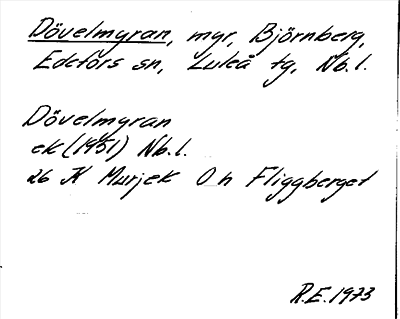 Dövelmyran, myr, Björnberg,
Edefors sn, Luleå tg, Nb.l.
Dövelmyran
ek (1951) Nb.l.
26 K Murjek Ö h Fliggberget
R.E. 1973